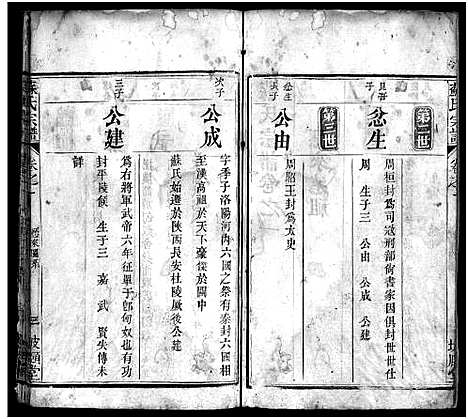 第二世
昆吾
子
忿生
周桓封爲司寇刑部尙書家因俱封世世仕
周 生子三 公由 公成 公建
第三世
忿生
長子
公由
周昭王封爲太史
次子
公成
字季子洛陽河內六國之祭有秦封六國相
至漢高祖於天下豪傑於關中
蘇氏始遷於陜西長安杜陵風後公建
三子
公建
爲右將軍武帝六年征單于郎甸奴也有功
封平陵侯 生子三 嘉 武 賢失傳未
詳
蘇氏宗譜
卷之一
三
坡願堂